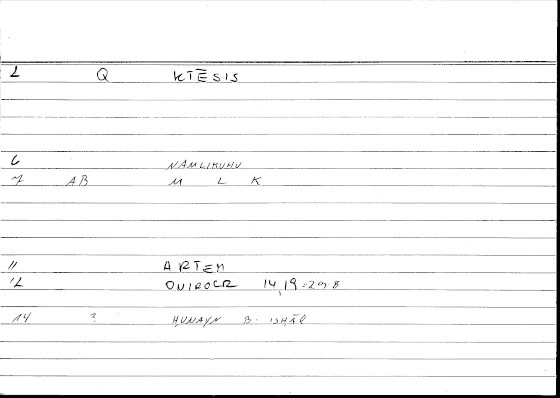 2 Q KTĒSIS
6 NAMLIKUHU
7 AB M L K
11 ARTEM
12 ONIROCR 14,19 = 29 8
14 ? ḤUNAYN B. ISḤĀQ